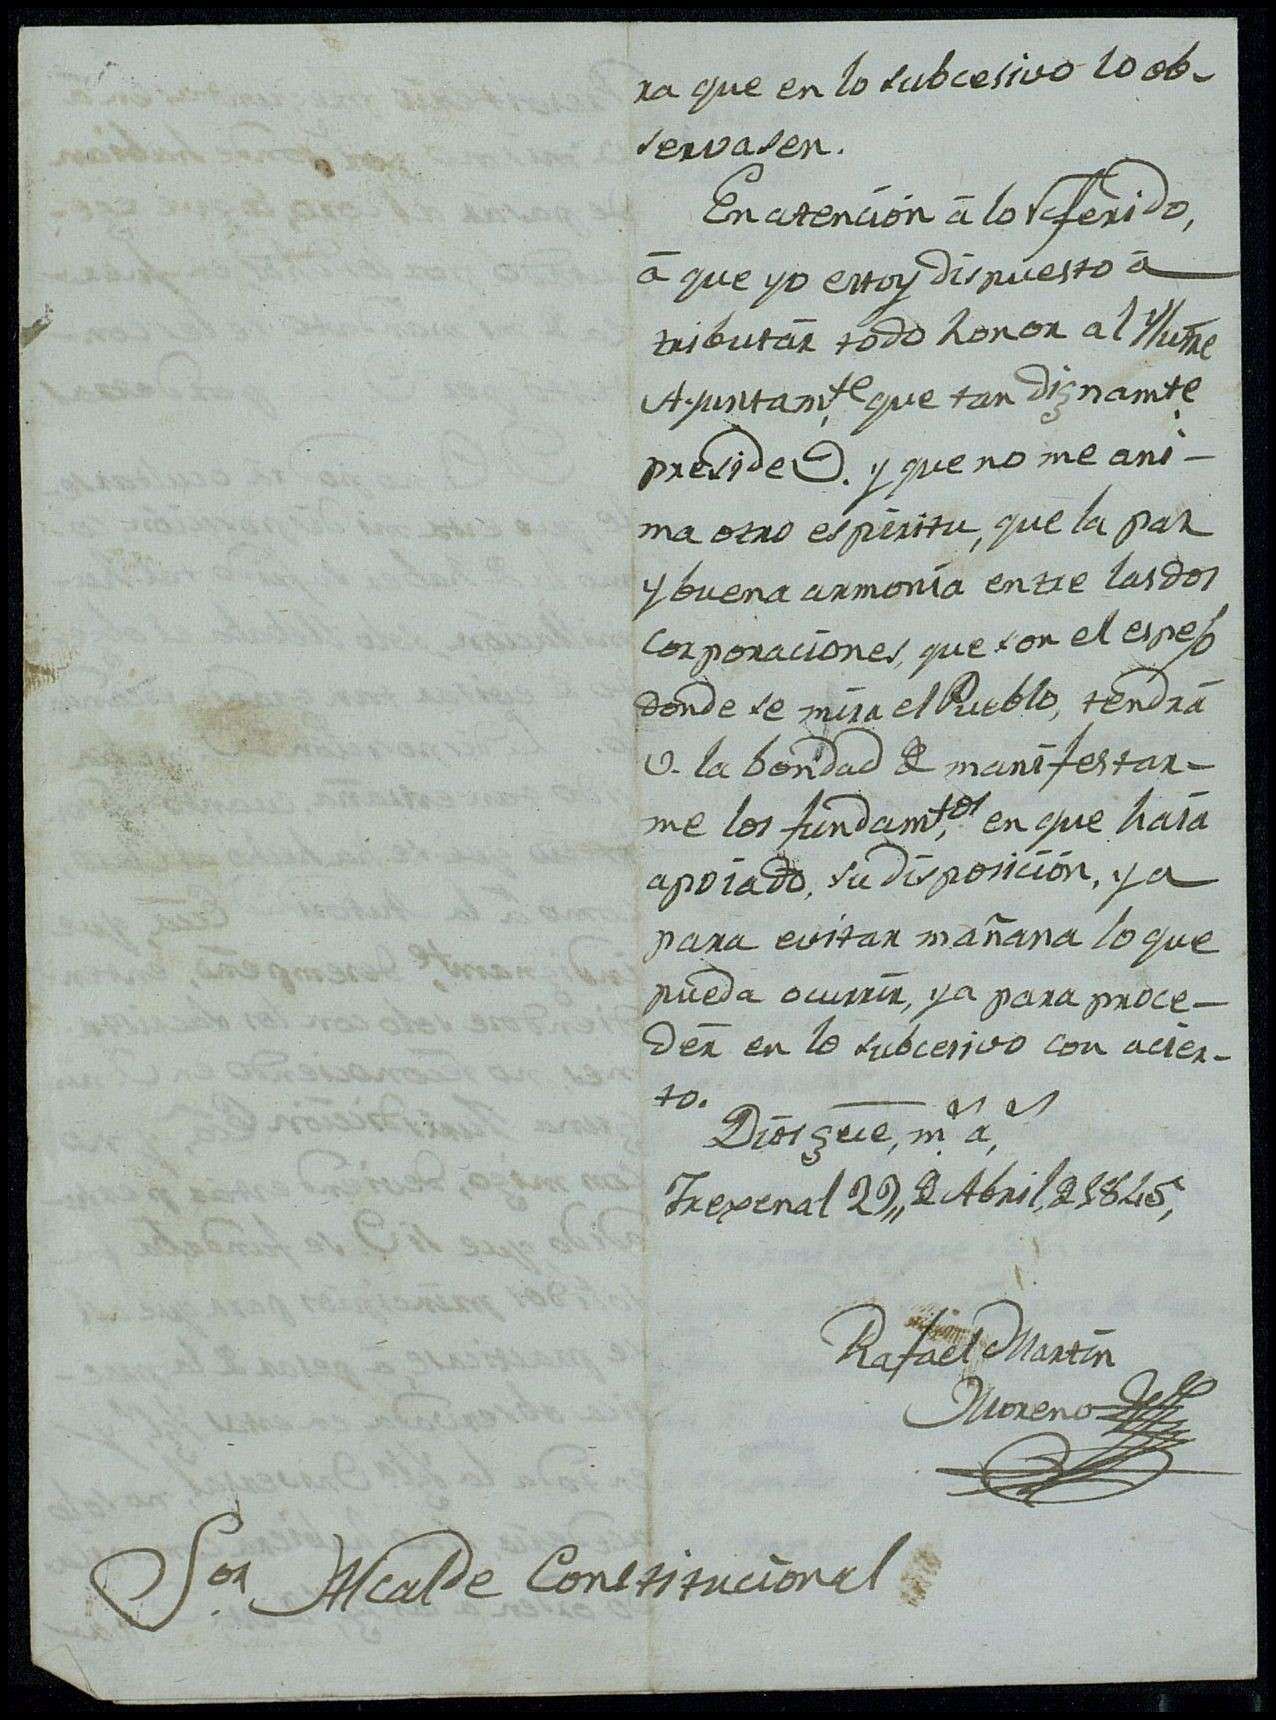 ra que en lo subcesivo lo ob-
servasen.
En atención á lo referido,
á que yo estoy dispuesto á
tributár todo honor al Yllutre
Ayuntam.te que tan dignamte
preside V. y que no me ani-
ma otro espíritu, que la paz
y buena armonía entre las dos
corporaciones, que son el espejo
donde se mira el Pueblo, tendrá
V. la bondad de manifestar-
me los fundamt.os en que haia
apoiado, su disposición, ya
para evitar mañana lo que
pueda ocurrir, ya para proce-
dér en lo subcesivo con acier-
to.
Dios gue, m.s a.s
Frexenal 29,, de Abril, de 1845,
Rafael Martín
Moreno
Sor. Alcalde Constitucional